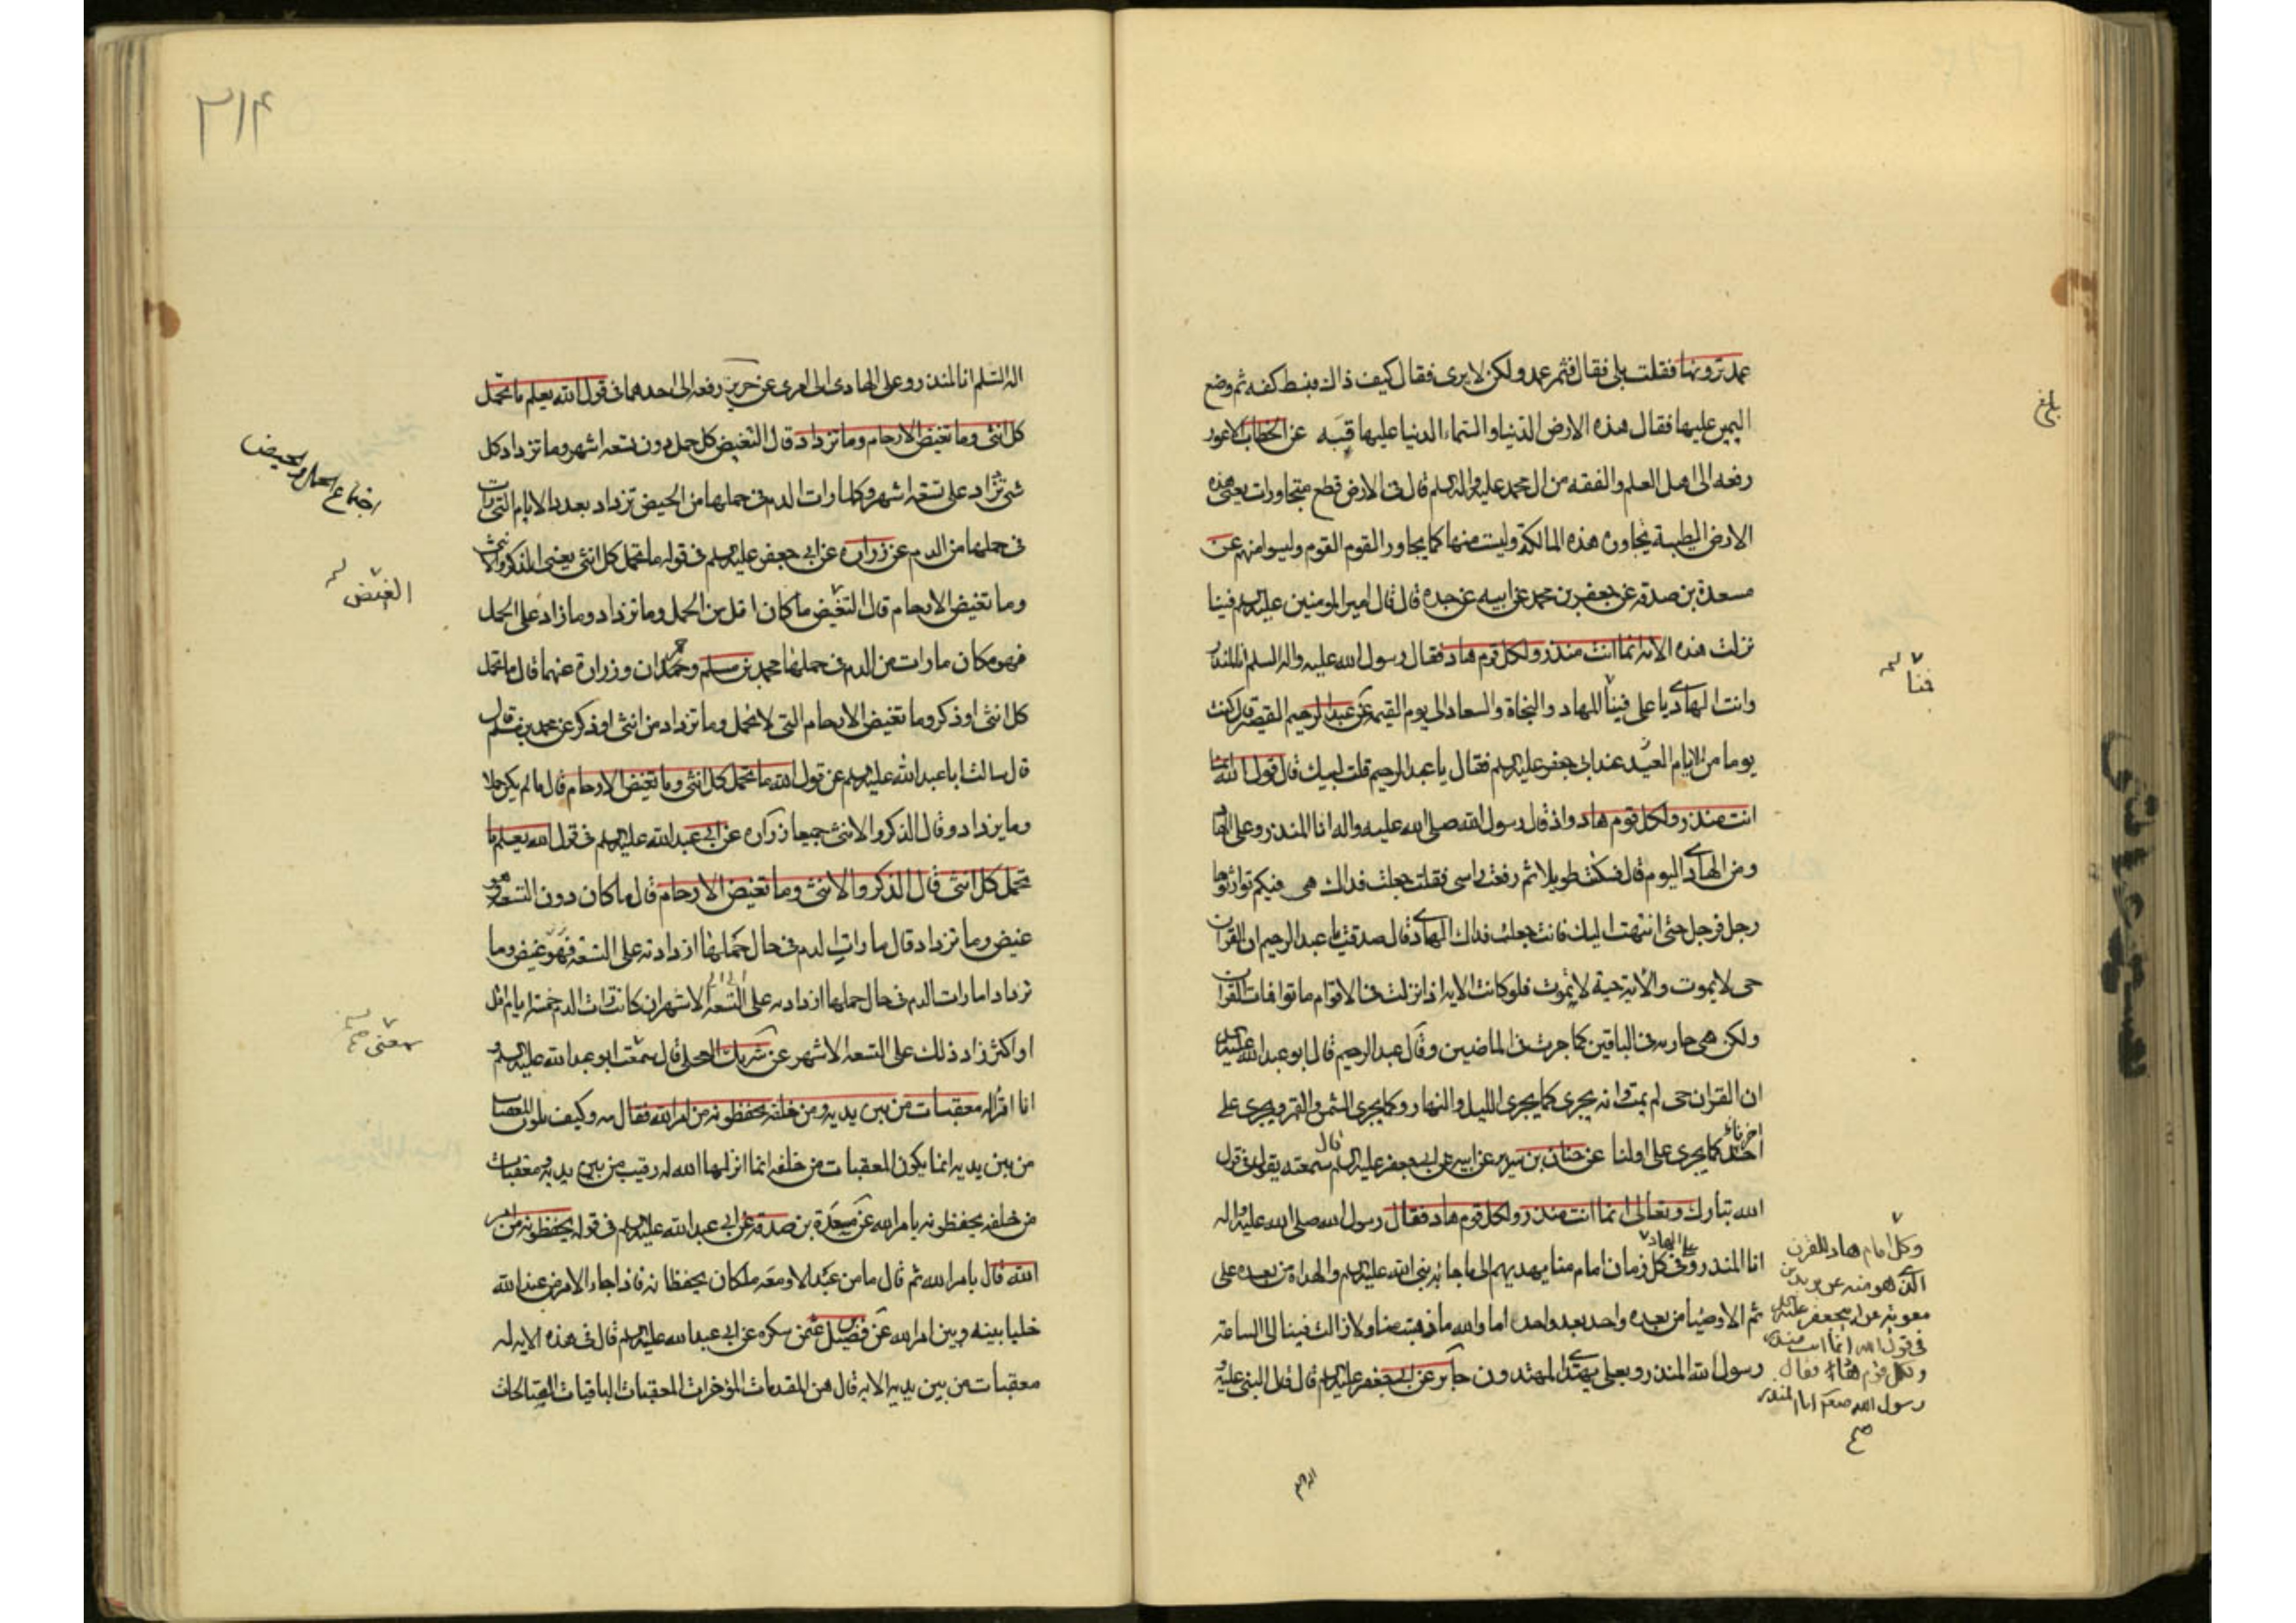 عمد ترونها فقلت بلى فقال فثم عمد ولكن لا يرى فقال كيف ذاك فبسط كفه ثم وضع
اليمين عليها فقال هذه الارض الدنيا والسماء الدنيا عليها قبة عن الخطاب الاعور
رفعه الى اهل العلم والفقه من ال محمد عليه واله السلم قال فى الارض قطع متجاورات يعنى هذه
الارض الطيبة يجاوره هذه المالكة وليست منها كما يجاور القوم القوم وليسوا منهم عن
مسعدة بن صدقه عن جعفر بن محمد عن ابيه عن جده قال قال امير المومنين عليه السلم فينا
نزلت هذه الايه انما انت منذر ولكل قوم هاد فقال رسول الله عليه واله السلم انا المنذر
وانت الهادى يا على فينا الهاد والنجاة والسعاد الى يوم القيمه عن عبد الرحيم القصير قال كنت
يوما من الايام العيد عند ابى جعفر عليه السلم فقال يا عبد الرحيم قلت لبيك قال قول الله انما
انت منذر ولكل قوم هاد واذ قال رسول الله صلى الله عليه واله انا المنذر وعلى الهاد
ومن الهادى اليوم قال فسكت طويلا ثم رفعت راسى فقلت جعلت فداك هى فيكم توارثوها
رجل فرجل حتى انتهت اليك فانت جعلت فداك الهادى قال صدقت يا عبد الرحيم ان القران
حى لا يموت والاية حية لا يموت فلو كانت الايه اذا نزلت فى الاقوام ماتوا فمات القران
ولكن هى جاريه فى الباقين كما جرت فى الماضين وقال عبد الرحيم قال ابو عبد الله عليه السلم
ان القران حى لم يمت وانه يجرى كما يجرى الليل والنهار وكما يجرى الشمس والقمر ويجرى على
اخرنا كما يجرى على اولنا عن حنان بن سدير عن ابيه عن ابى جعفر عليه السلم قال سمعته يقول فى قول
الله تبارك وتعالى انما انت منذر ولكل قوم هاد فقال رسول الله صلى الله عليه واله
انا المنذر وعلى الهاد وفى كل زمان امام منا يهديهم الى ما جاء به نبى الله عليه السلم والهداة من بعده على
ثم الاوصيا من بعده واحد بعد واحد اما والله ما ذهبت منا ولا زالت فينا الى الساعة
رسول الله المنذر وبعلى يهتدى المهتدون جابر عن ابى جعفر عليه السلم قال قال النبى عليه
بلغ
منا
وكل امام هاد للقرن
الذى هو منه عن بريد بن
معويه عن ابى جعفر عليه السلم
فى قول الله انما انت منذر
ولكل قوم هاد فقال
رسول الله صلعم انا المنذر
صح
اله السلم
٣١۴
اله السلم انا المنذر وعلى الهادى الى امرى عن حريز رفعه الى احدهما فى قول الله يعلم ما تحمل
كل انثى وما تغيض الارحام وما تزداد قال التغيض كل حمل دون تسعه اشهر وما تزداد كل
شى تزاد على تسعة اشهر وكلما رات الدم فى حملها من الحيض تزداد بعدد الايام التى رات
فى حملها من الدم عن زراره عن ابى جعفر عليه السلم فى قوله ما تحمل كل انثى يعنى الذكر والانثى
وما تغيض الارحام قال التغيض ما كان اقل من الحمل وما تزداد وما زاد على الحمل
فهو مكان ما رات من الدم فى حملها محمد بن مسلم وحمران وزرارة عنهما قال ما تحمل
كل انثى او ذكر وما تغيض الارحام التى لا تحمل وما تزداد من انثى او ذكر عن محمد بن مسلم قال
قال سالت ابا عبد الله عليه السلم عن قول الله ما تحمل كل انثى وما تغيض الارحام قال ما لم يكن حملا
وما يزداد وقال الذكر والانثى جميعا زراره عن ابى عبد الله عليه السلم فى قول الله يعلم ما
تحمل كل انثى قال الذكر والانثى وما تغيض الارحام قال ما كان دون التسعه فهو
غيض وما تزداد قال ما رات الدم فى حال حملها ازداد به على التسعه فهو غيض وما
تزداد ما رات الدم فى حال حملها ازداد به على التسعه الاشهر ان كانت رات الدم خمسة ايام اقل
او اكثر زاد ذلك على التسعه الاشهر عن شريك العجلى قال سمعت ابو عبد الله عليه السلم و
انا اقرا له معقبات من بين يديه ومن خلفه يحفظونه من امر الله فقال مه وكيف يكون المعقبات
من بين يديه انما يكون المعقبات من خلفه انما انزلها الله له رقيب من بين يديه ومعقبات
من خلفه يحفظونه بامر الله عن مسعدة بن صدقه عن ابى عبد الله عليه السلم فى قوله يحفظونه من امر
الله قال بامر الله ثم قال ما من عبد الا ومعه ملكان يحفظانه فاذا جاء الامر من عند الله
خليا بينه وبين امر الله عن فضيل بن عثمن سكره عن ابى عبد الله عليه السلم قال فى هذه الايه له
معقبات من بين يديه الايه قال هن المقدمات المؤخرات المعقبات الباقيات الصالحات
اجتماع الحمل والحيض
الغيض
سمعنى صح